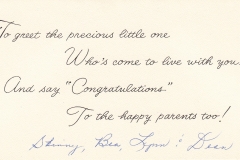 To greet the precious little one
Who's come to live with you
And say "Congratulations"
To the happy parents too!
Skinny, Bea, Lynn & Dean